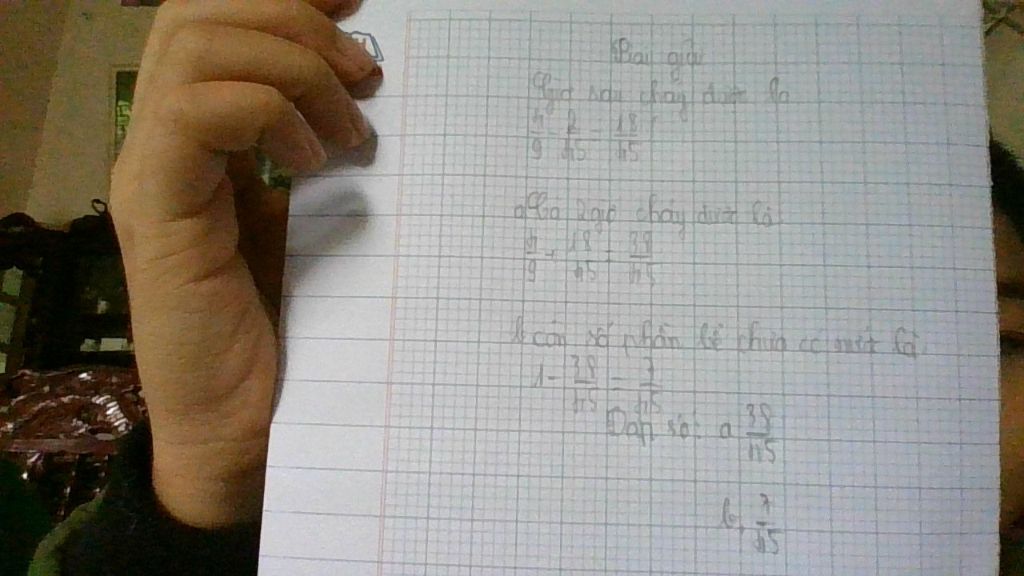 Bài giải
giờ sau chảy được là
4/9 - 2/45 = 18/45
a, Cả 2 giờ chảy được là
4/9 + 18/45 = 38/45
b, còn số phần bể chưa có nước là
1 - 38/45 = 7/45
Đáp số: a 38/45
b, 7/45